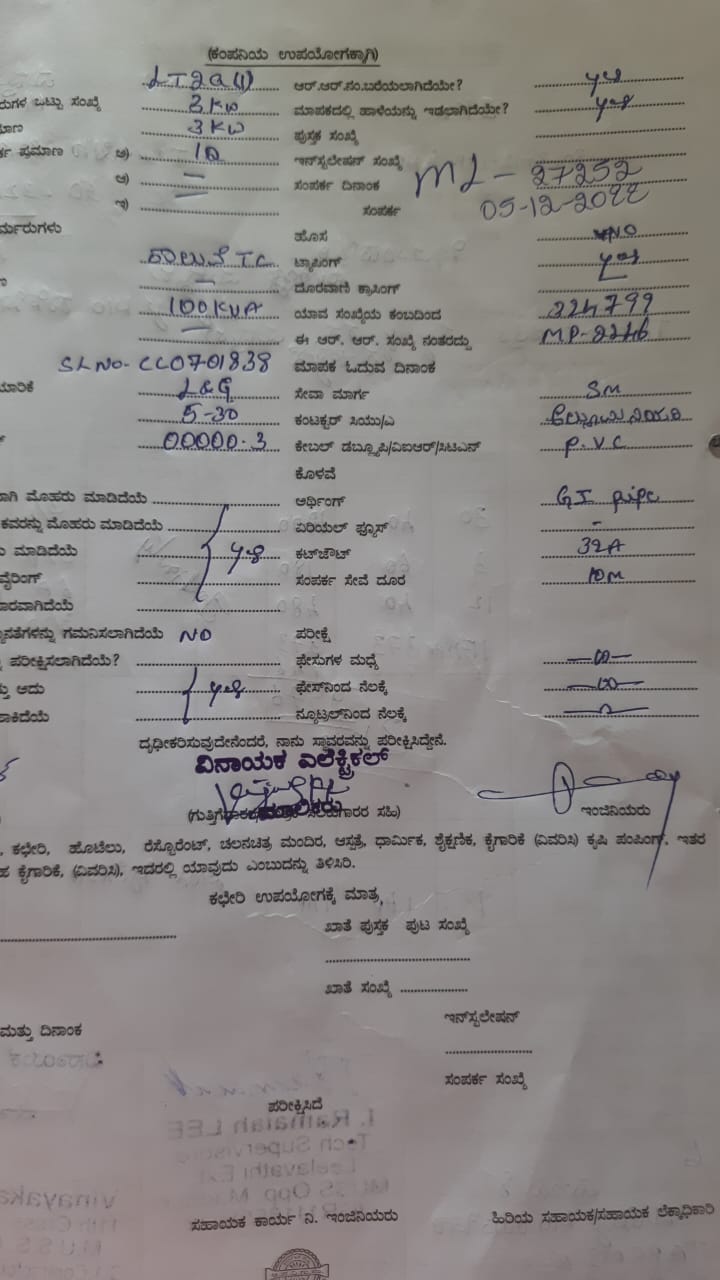 (ಕಂಪನಿಯ ಉಪಯೋಗಕ್ಕಾಗಿ)
LT2a(1) ಆರ್.ಆರ್.ನಂ.ಬರೆಯಲಾಗಿದೆಯೇ? yes
ರುಗಳ ಒಟ್ಟು ಸಂಖ್ಯೆ 3 KW ಮಾಪಕದಲ್ಲಿ ಹಾಳೆಯನ್ನು ಇಡಲಾಗಿದೆಯೇ? yes
ಮಾಣ 3 KW ಪುಸ್ತಕ ಸಂಖ್ಯೆ
ರ್ಕ ಪ್ರಮಾಣ ಅ) ಇನ್‌ಸ್ಟಲೇಷನ್ ಸಂಖ್ಯೆ
ಆ) – ಸಂಪರ್ಕ ದಿನಾಂಕ ML – 27252
ಇ) – ಸಂಪರ್ಕ 05-12-2022
ರ್ಮರುಗಳು ಹೊಸ NO
ಕಾಲುವೆ TC ಟ್ಯಾಪಿಂಗ್ yes
ಣ – ದೂರವಾಣಿ ಕ್ರಾಸಿಂಗ್
100 KVA ಯಾವ ಸಂಖ್ಯೆಯ ಕಂಬದಿಂದ 224799
– ಈ ಆರ್. ಆರ್. ಸಂಖ್ಯೆ ನಂತರದ್ದು MP-2246
SLNO- CC0701838 ಮಾಪಕ ಓದುವ ದಿನಾಂಕ
ಯಾರಿಕೆ L&G ಸೇವಾ ಮಾರ್ಗ SM
5-30 ಕಂಟಕ್ಟರ್ ಸಿಯು/ಎ
00000.3 ಕೇಬಲ್ ಡಬ್ಲ್ಯೂಪಿ/ವಿಐಆರ್/ಸಿಟಿಎಸ್ P.V.C
ಕೊಳವೆ
ಾಗಿ ಮೊಹರು ಮಾಡಿದೆಯೆ ಆರ್ಥಿಂಗ್ GI pipe
ಕವರನ್ನು ಮೊಹರು ಮಾಡಿದೆಯೆ ಏರಿಯಲ್ ಫ್ಯೂಸ್ –
ು ಮಾಡಿದೆಯೆ yes ಕಟ್‌ಔಟ್ 32A
ವೈರಿಂಗ್ ಸಂಪರ್ಕ ಸೇವೆ ದೂರ 10M
ಾರವಾಗಿದೆಯೆ
ನತೆಗಳನ್ನು ಗಮನಿಸಲಾಗಿದೆಯೆ NO ಪರೀಕ್ಷೆ
ಪರೀಕ್ಷಿಸಲಾಗಿದೆಯೆ? ಫೇಸುಗಳ ಮಧ್ಯೆ
್ತು ಅದು yes ಫೇಸ್‌ನಿಂದ ನೆಲಕ್ಕೆ
ಾಕಿದೆಯೆ ನ್ಯೂಟ್ರಲ್‌ನಿಂದ ನೆಲಕ್ಕೆ
ದೃಢೀಕರಿಸುವುದೇನೆಂದರೆ, ನಾನು ಸ್ಥಾವರವನ್ನು ಪರೀಕ್ಷಿಸಿದ್ದೇನೆ.
ವಿನಾಯಕ ಎಲೆಕ್ಟ್ರಿಕಲ್
ಮಾಲಿಕರು
ಸಹಿ) ಇಂಜಿನಿಯರು
, ಕಛೇರಿ, ಹೊಟೆಲು, ರೆಸ್ಟೊರೆಂಟ್, ಚಲನಚಿತ್ರ ಮಂದಿರ, ಆಸ್ಪತ್ರೆ, ಧಾರ್ಮಿಕ, ಶೈಕ್ಷಣಿಕ, ಕೈಗಾರಿಕೆ (ವಿವರಿಸಿ) ಕೃಷಿ ಪಂಪಿಂಗ್, ಇತರ
ಹ ಕೈಗಾರಿಕೆ, (ವಿವರಿಸಿ), ಇದರಲ್ಲಿ ಯಾವುದು ಎಂಬುದನ್ನು ತಿಳಿಸಿರಿ.
ಕಛೇರಿ ಉಪಯೋಗಕ್ಕೆ ಮಾತ್ರ
ಖಾತೆ ಪುಸ್ತಕ ಪುಟ ಸಂಖ್ಯೆ
ಖಾತೆ ಸಂಖ್ಯೆ
ಇನ್‌ಸ್ಟಲೇಷನ್
ಮತ್ತು ದಿನಾಂಕ
ಸಂಪರ್ಕ ಸಂಖ್ಯೆ
ಪರೀಕ್ಷಿಸಿದೆ
ಸಹಾಯಕ ಕಾರ್ಯ ನಿ. ಇಂಜಿನಿಯರು ಹಿರಿಯ ಸಹಾಯಕ/ಸಹಾಯಕ ಲೆಕ್ಕಾಧಿಕಾರಿ